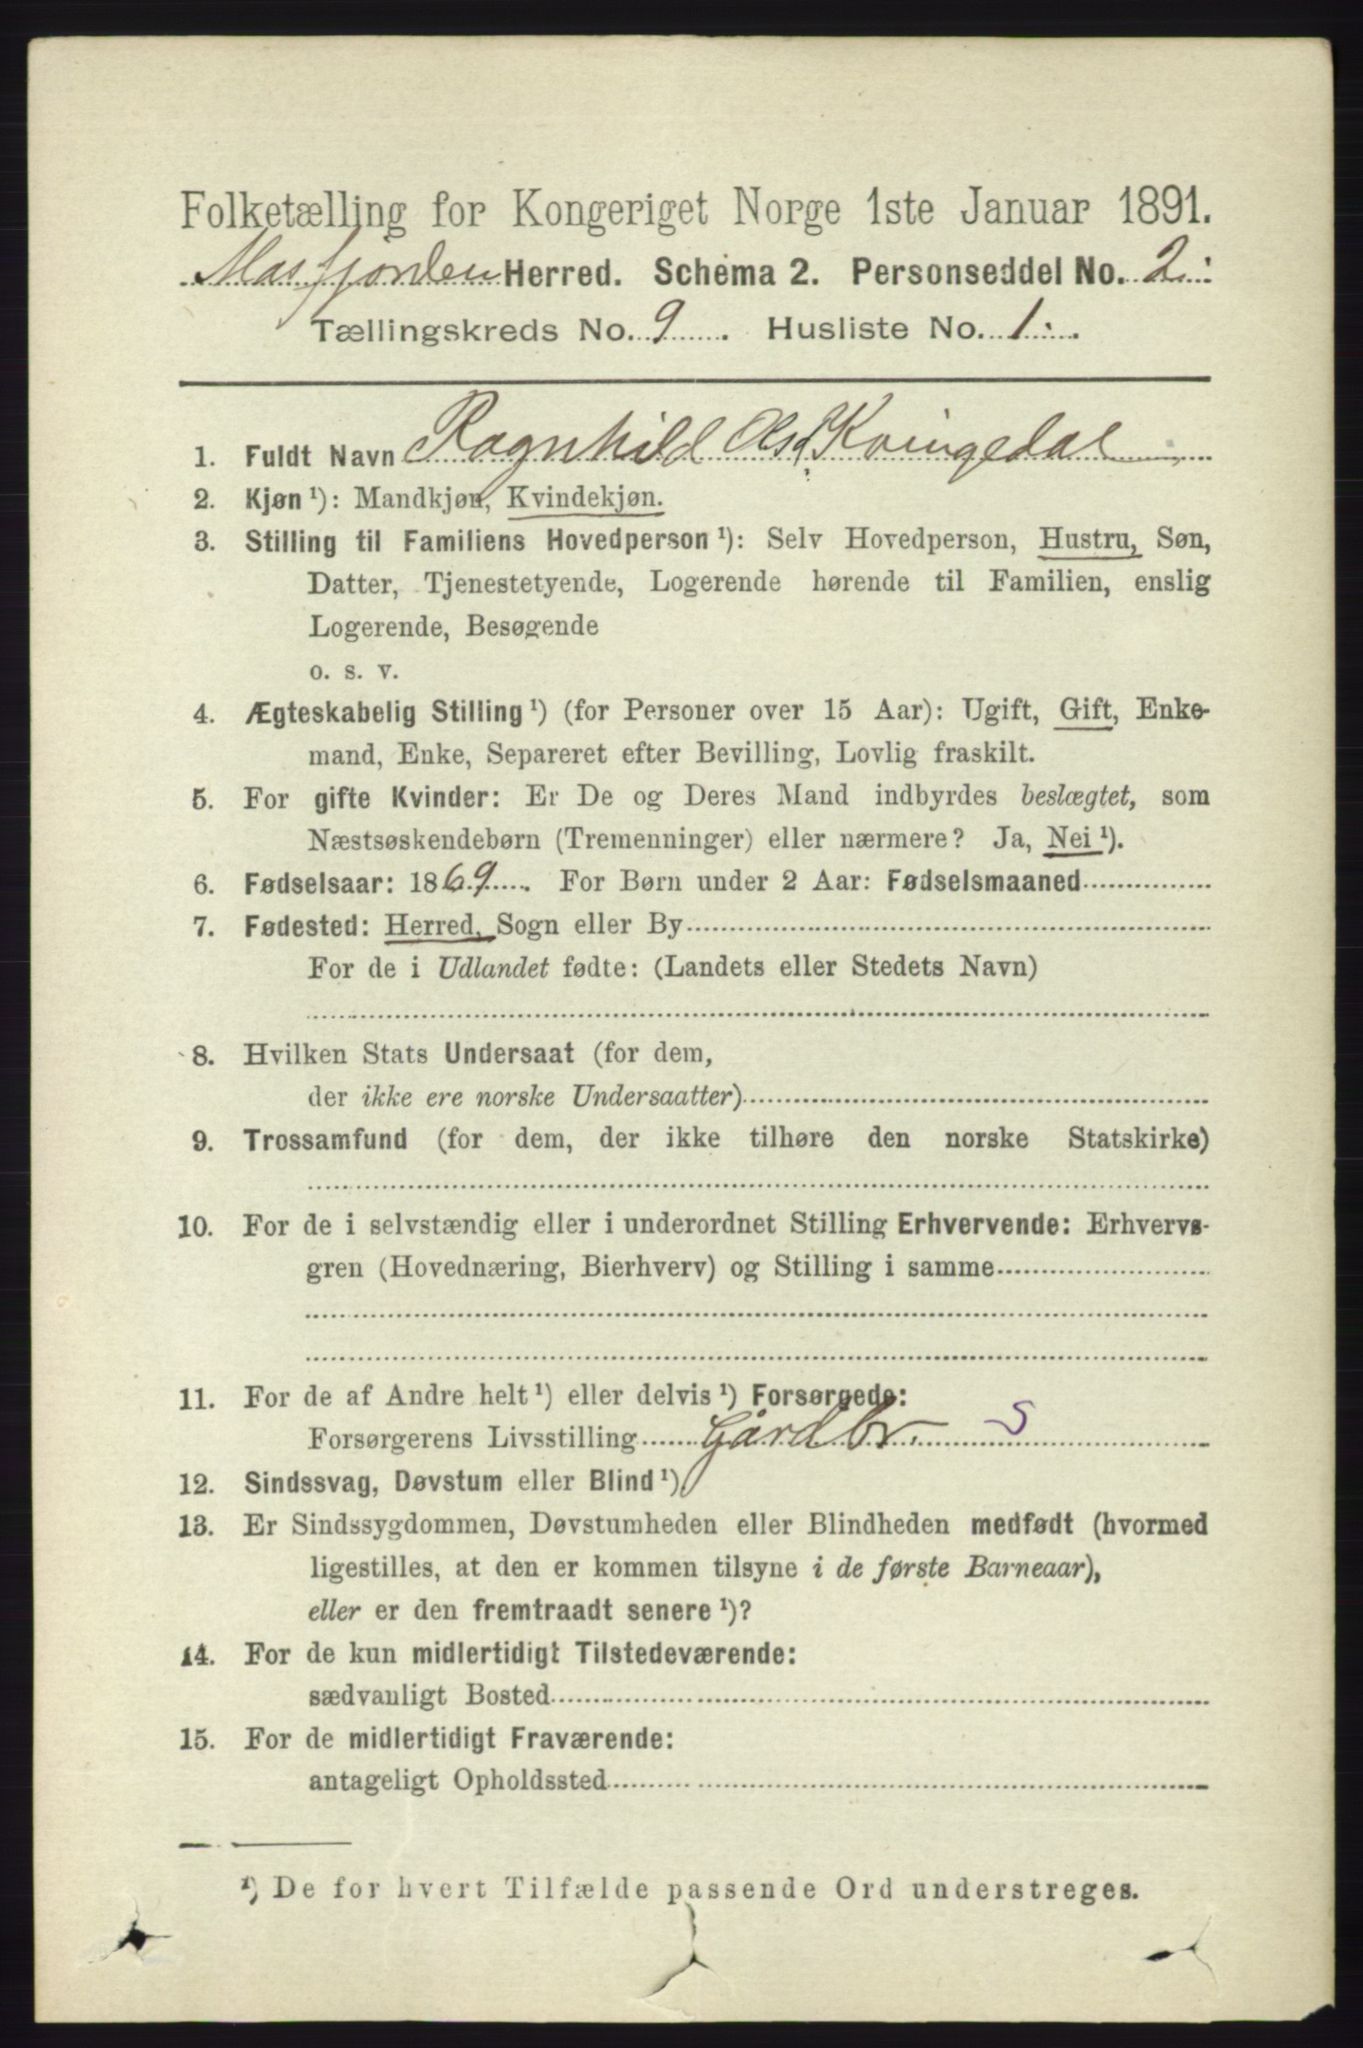 Folketælling for Kongeriget Norge 1ste Januar 1891.
Masfjorden Herred. Schema 2. Personseddel No. 2.
Tællingskreds No. 9. Husliste No. 1.
1. Fuldt Navn Ragnhild Olsd. Kvingedal
2. Kjøn ¹): Mandkjøn, Kvindekjøn.
3. Stilling til Familiens Hovedperson ¹): Selv Hovedperson, Hustru, Søn,
Datter, Tjenestetyende, Logerende hørende til Familien, enslig
Logerende, Besøgende
o. s. v.
4. Ægteskabelig Stilling ¹) (for Personer over 15 Aar): Ugift, Gift, Enke-
mand, Enke, Separeret efter Bevilling, Lovlig fraskilt.
5. For gifte Kvinder: Er De og Deres Mand indbyrdes beslægtet, som
Næstsøskendebørn (Tremenninger) eller nærmere? Ja, Nei ¹).
6. Fødselsaar: 1869. For Børn under 2 Aar: Fødselsmaaned
7. Fødested: Herred, Sogn eller By
For de i Udlandet fødte: (Landets eller Stedets Navn)
8. Hvilken Stats Undersaat (for dem,
der ikke ere norske Undersaatter)
9. Trossamfund (for dem, der ikke tilhøre den norske Statskirke)
10. For de i selvstændig eller i underordnet Stilling Erhvervende: Erhvervs-
gren (Hovednæring, Bierhverv) og Stilling i samme
11. For de af Andre helt ¹) eller delvis ¹) Forsørgede:
Forsørgerens Livsstilling Gårdbr. S
12. Sindssvag, Døvstum eller Blind ¹)
13. Er Sindssygdommen, Døvstumheden eller Blindheden medfødt (hvormed
ligestilles, at den er kommen tilsyne i de første Barneaar),
eller er den fremtraadt senere ¹)?
14. For de kun midlertidigt Tilstedeværende:
sædvanligt Bosted
15. For de midlertidigt Fraværende:
antageligt Opholdssted
¹) De for hvert Tilfælde passende Ord understreges.